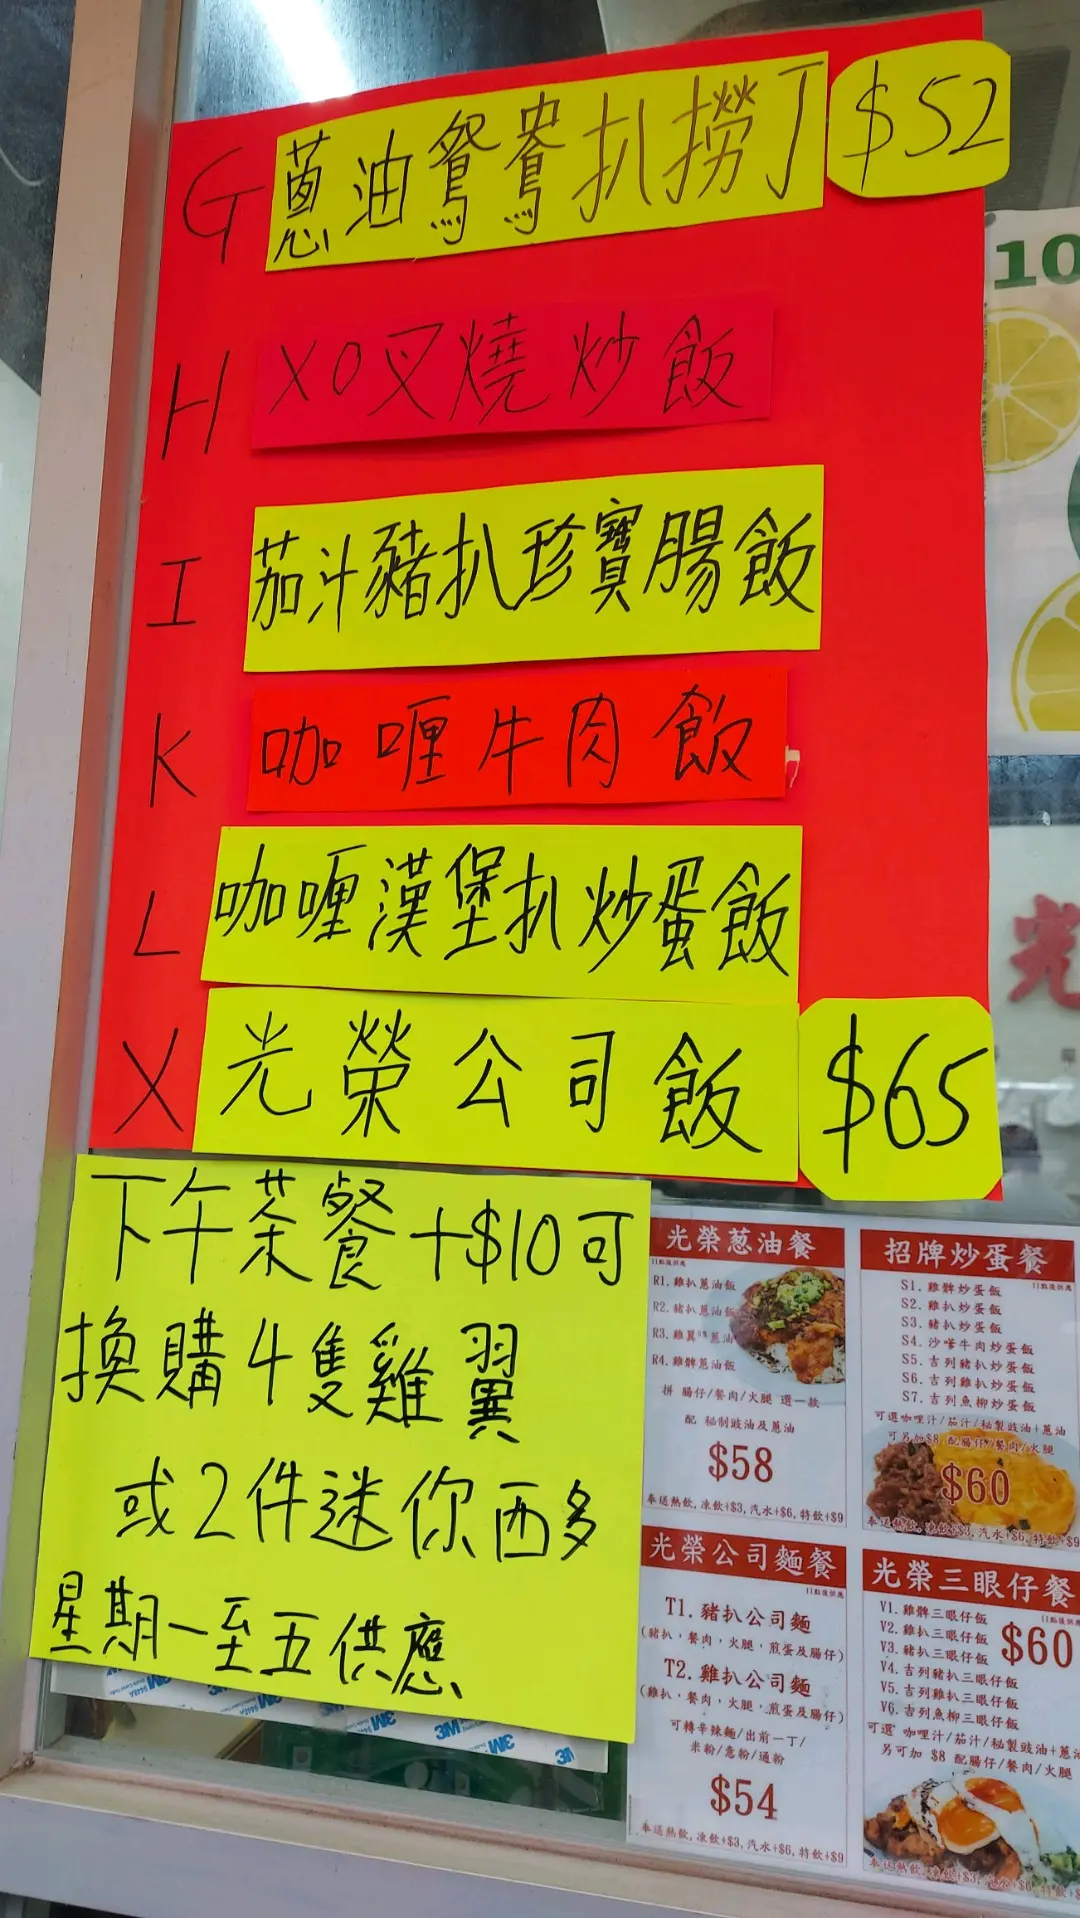 G 蔥油鴛鴦扒撈丁 $52
H XO叉燒炒飯
I 茄汁豬扒珍寶腸飯
K 咖喱牛肉飯
L 咖喱漢堡扒炒蛋飯
X 光榮公司飯 $65
下午茶餐+$10可
換購4隻雞翼
或2件迷你西多
星期一至五供應
10
光榮葱油餐
11點後供應
R1. 雞扒蔥油飯
R2. 豬扒蔥油飯
R3. 雞翼 蔥油
R4. 雞髀蔥油飯
拼 腸仔/餐肉/火腿 選一款
配 秘制豉油及蔥油
$58
奉送熱飲, 凍飲+$3, 汽水+$6, 特飲+$9
招牌炒蛋餐
11點後供應
S1. 雞髀炒蛋飯
S2. 雞扒炒蛋飯
S3. 豬扒炒蛋飯
S4. 沙嗲牛肉炒蛋飯
S5. 吉列豬扒炒蛋飯
S6. 吉列雞扒炒蛋飯
S7. 吉列魚柳炒蛋飯
可選咖哩汁/茄汁/秘製豉油+蔥油
可另加$8 配腸仔/餐肉/火腿
$60
奉送熱飲, 凍飲+$3, 汽水+$6, 特飲+$9
光榮公司麵餐
11點後供應
T1. 豬扒公司麵
(豬扒，餐肉，火腿，煎蛋及腸仔)
T2. 雞扒公司麵
(雞扒，餐肉，火腿，煎蛋及腸仔)
可轉辛辣麵/出前一丁/
米粉/意粉/通粉
$54
奉送熱飲, 凍飲+$3, 汽水+$6, 特飲+$9
光榮三眼仔餐
11點後供應
V1. 雞髀三眼仔飯
V2. 雞扒三眼仔飯
V3. 豬扒三眼仔飯
V4. 吉列豬扒三眼仔飯
V5. 吉列雞扒三眼仔飯
V6. 吉列魚柳三眼仔飯
$60
可選 咖哩汁/茄汁/秘製豉油+蔥油
另可加 $8 配腸仔/餐肉/火腿
奉送熱飲, 凍飲+$3, 汽水+$6, 特飲+$
光
3M 3M 3M 3M